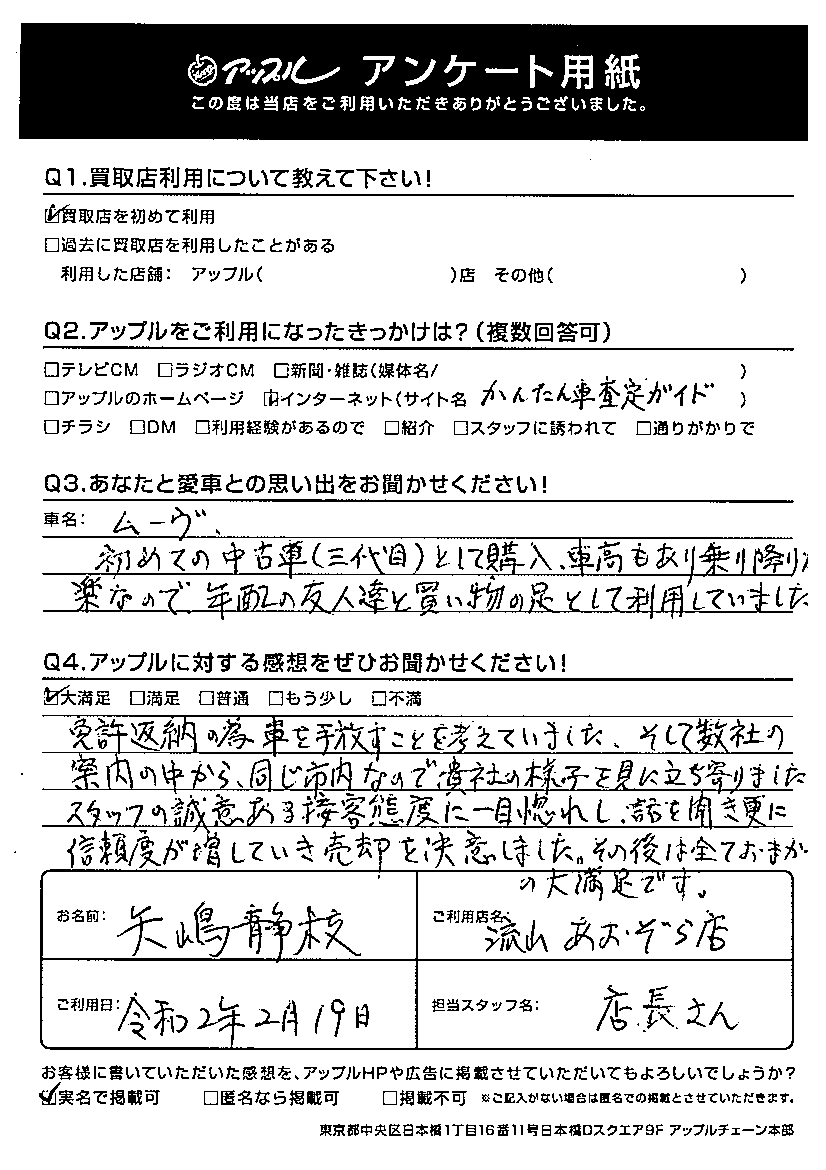 アップル アンケート用紙
この度は当店をご利用いただきありがとうございました。
Q1.買取店利用について教えて下さい!
☑買取店を初めて利用
□過去に買取店を利用したことがある
利用した店舗: アップル( )店 その他( )
Q2.アップルをご利用になったきっかけは?(複数回答可)
□テレビCM □ラジオCM □新聞・雑誌(媒体名/ )
□アップルのホームページ ☑インターネット(サイト名 かんたん車査定ガイド )
□チラシ □DM □利用経験があるので □紹介 □スタッフに誘われて □通りがかりで
Q3.あなたと愛車との思い出をお聞かせください!
車名: ムーヴ、
初めての中古車(三代目)として購入、車高もあり乗り降り
楽なので、年配の友人達と買い物の足として利用していました
Q4.アップルに対する感想をぜひお聞かせください!
☑大満足 □満足 □普通 □もう少し □不満
免許返納の為車を手放すことを考えていました、そして数社の
案内の中から、同じ市内なので貴社の様子を見に立ち寄りました
スタッフの誠意ある接客態度に一目惚れし、話を聞き更に
信頼度が増していき売却を決意しました。その後は全ておまか
の大満足です。
お名前: 矢嶋静枝
ご利用店名: 流山あおぞら店
ご利用日: 令和2年2月19日
担当スタッフ名: 店長さん
お客様に書いていただいた感想を、アップルHPや広告に掲載させていただいてもよろしいでしょうか?
☑実名で掲載可 □匿名なら掲載可 □掲載不可 ※ご記入がない場合は匿名での掲載とさせていただきます。
東京都中央区日本橋1丁目16番11号日本橋Dスクエア9F アップルチェーン本部